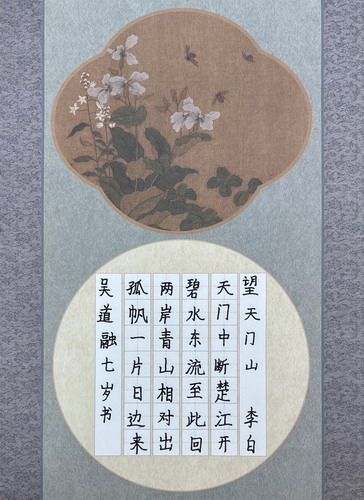 望天门山 李白
天门中断楚江开
碧水东流至此回
两岸青山相对出
孤帆一片日边来
吴道融七岁书